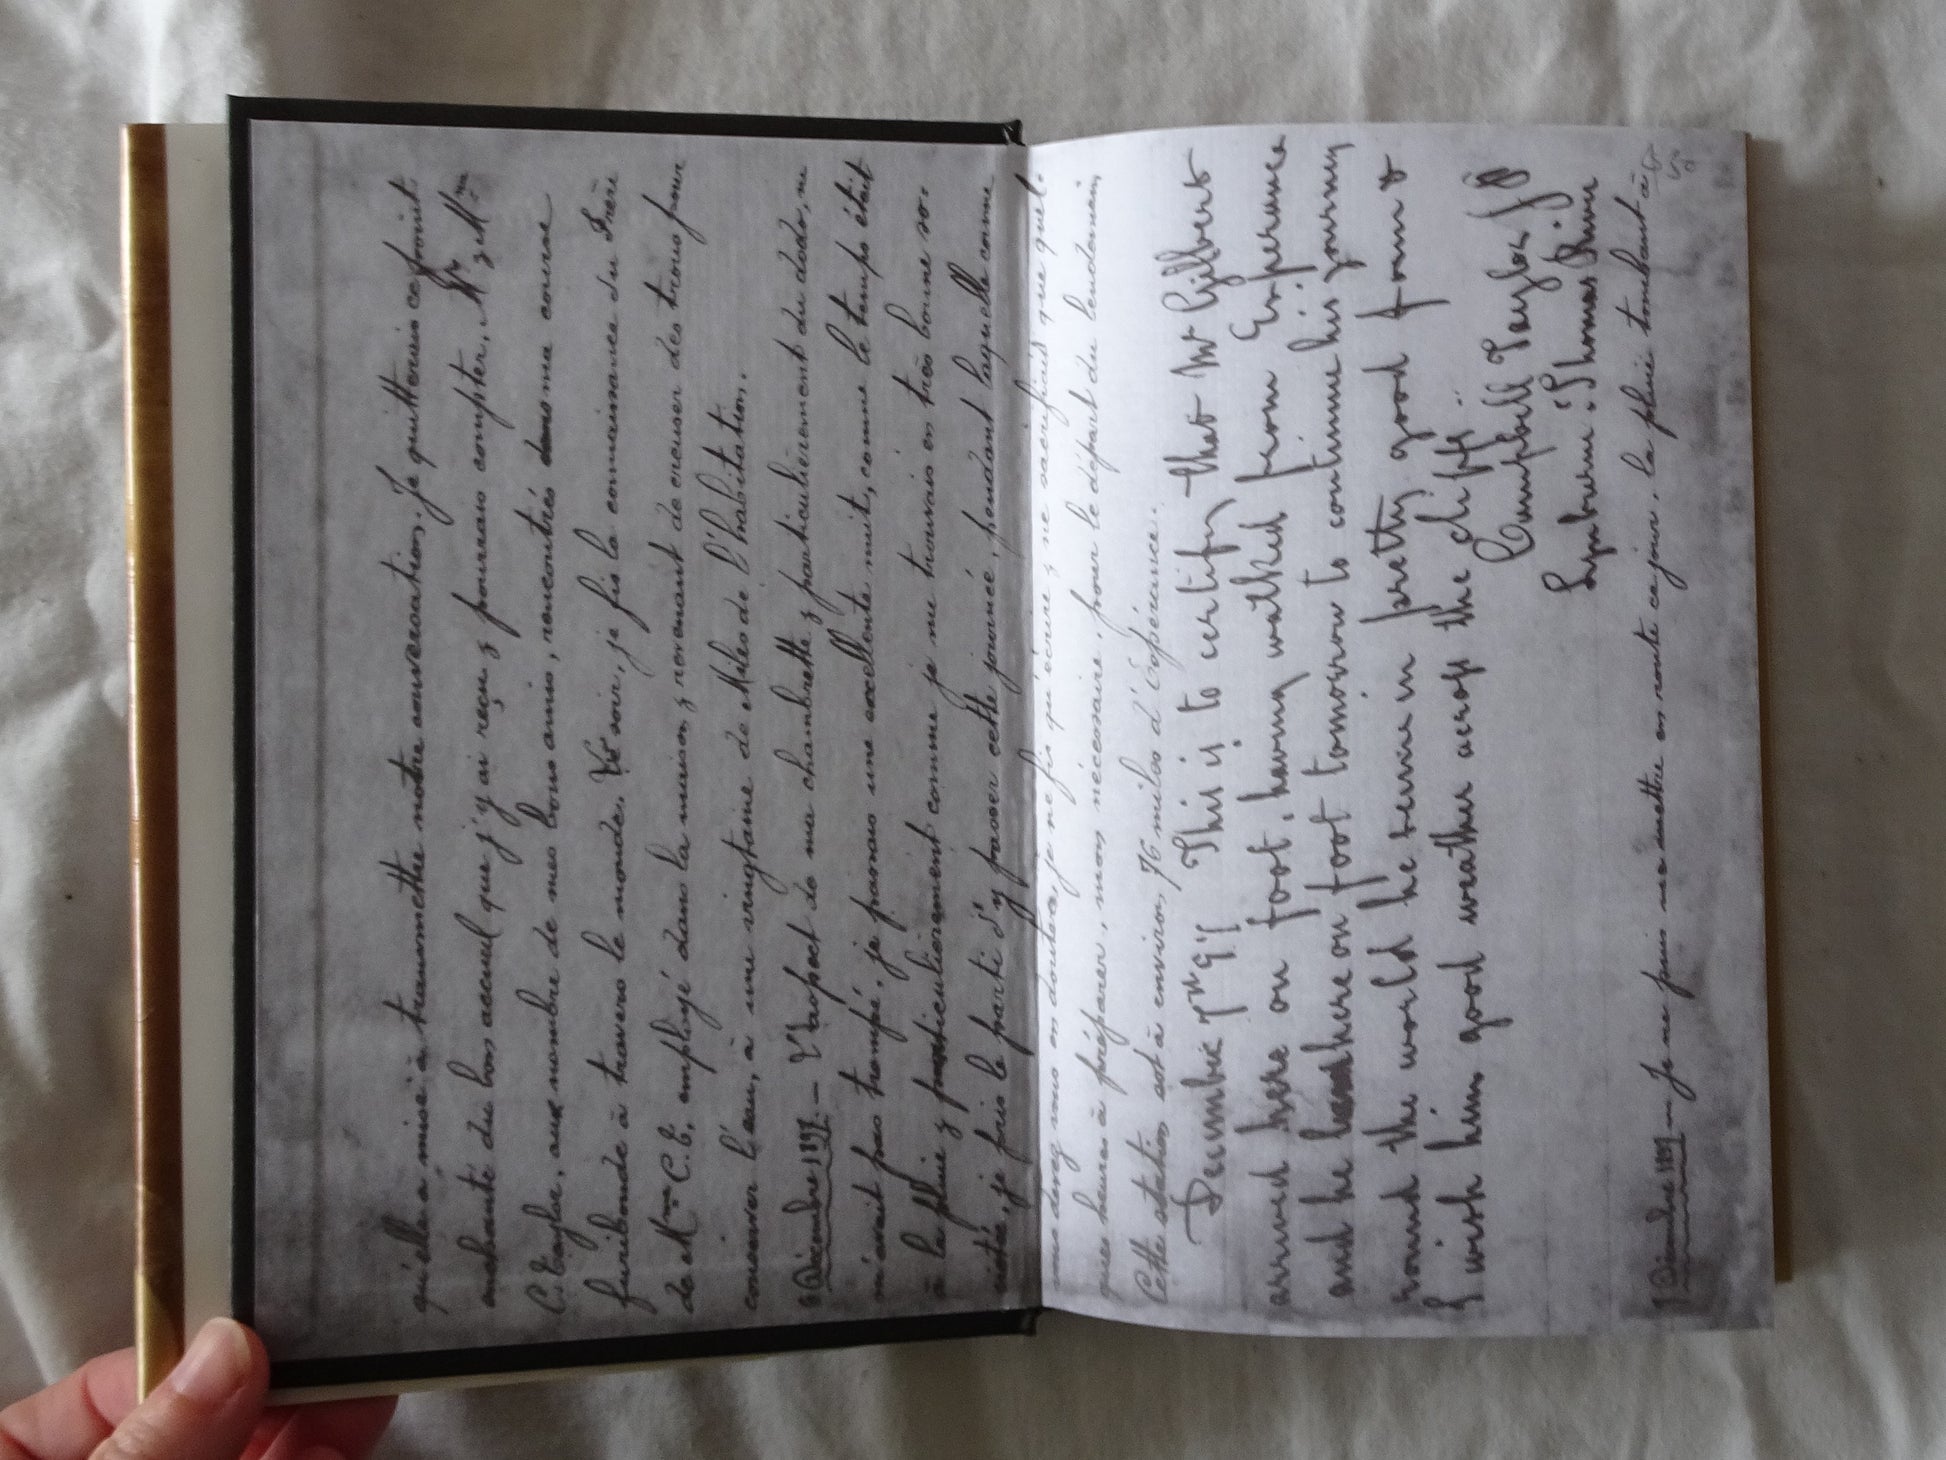 qu'elle a mise à transmettre notre conversation. Je quitterais ce froid
enchanté du bon accueil que j'y ai reçu & pourrais compter, Mr & Mme
C. Tayler, au nombre de mes bons amis, rencontrés dans ma course
furibonde à travers le monde. Ce soir, je fis la connaissance du Frère
de Mme C.T. employé dans la maison & revenant de creuser des trous pour
conserver l'eau, à une vingtaine de Miles de l'habitation.
6 Décembre 1897. — L'aspect de ma chambrette & particulièrement du dodo, ne
m'avait pas trompé, je passais une excellente nuit, comme le temps était
à la pluie & particulièrement comme je me trouvais en très bonne so-
ciété, je pris le parti d'y passer cette journée, pendant laquelle comme
vous devez vous en douter, je ne fis qu'écrire & ne sacrifiait que quel-
ques heures à préparer, mon nécessaire, pour le départ du lendemain,
Cette station est à environ 76 miles d'Espérence.
December 7th 97 This is to certify that Mr Gilbert
arrived here on foot, having walked from Esperence
and he leaves here on foot tomorrow to continue his journey
round the world he remains in pretty good form &
I wish him good weather across the cliffs.
Campbell Taylor JP
Lynburn: Thomas River
7 Décembre 1897 — Je ne puis me mettre en route ce jour, la pluie tombant à